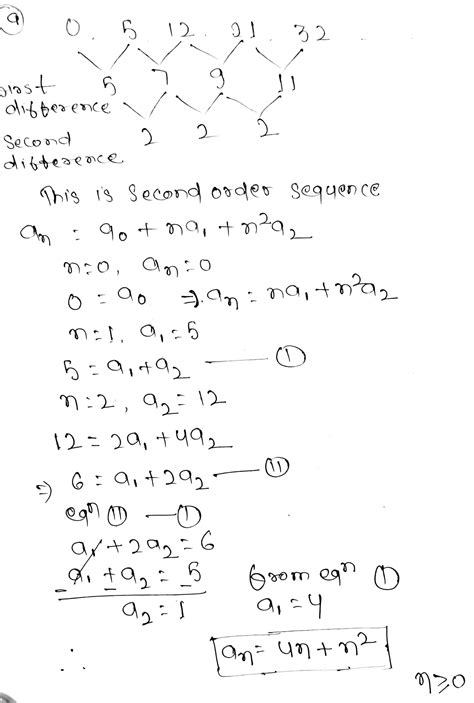 a
0. 5 12. 21. 32
5 7 9 11
First
difference
2 2 2
Second
difference
This is second order sequence
an = a0 + na1 + n²a2
n=0, an=0
0 = a0 ⇒. an = na1 + n²a2
n=1. a1=5
5 = a1+a2 — I
n=2, a2=12
12 = 2a1 + 4a2
⇒ 6 = a1 + 2a2 — II
eqn II — I
a1 + 2a2 = 6
a1 + a2 = 5
- - -
a2 = 1
from eqn I
a1 = 4
∴ an = 4n + n²
n≥0